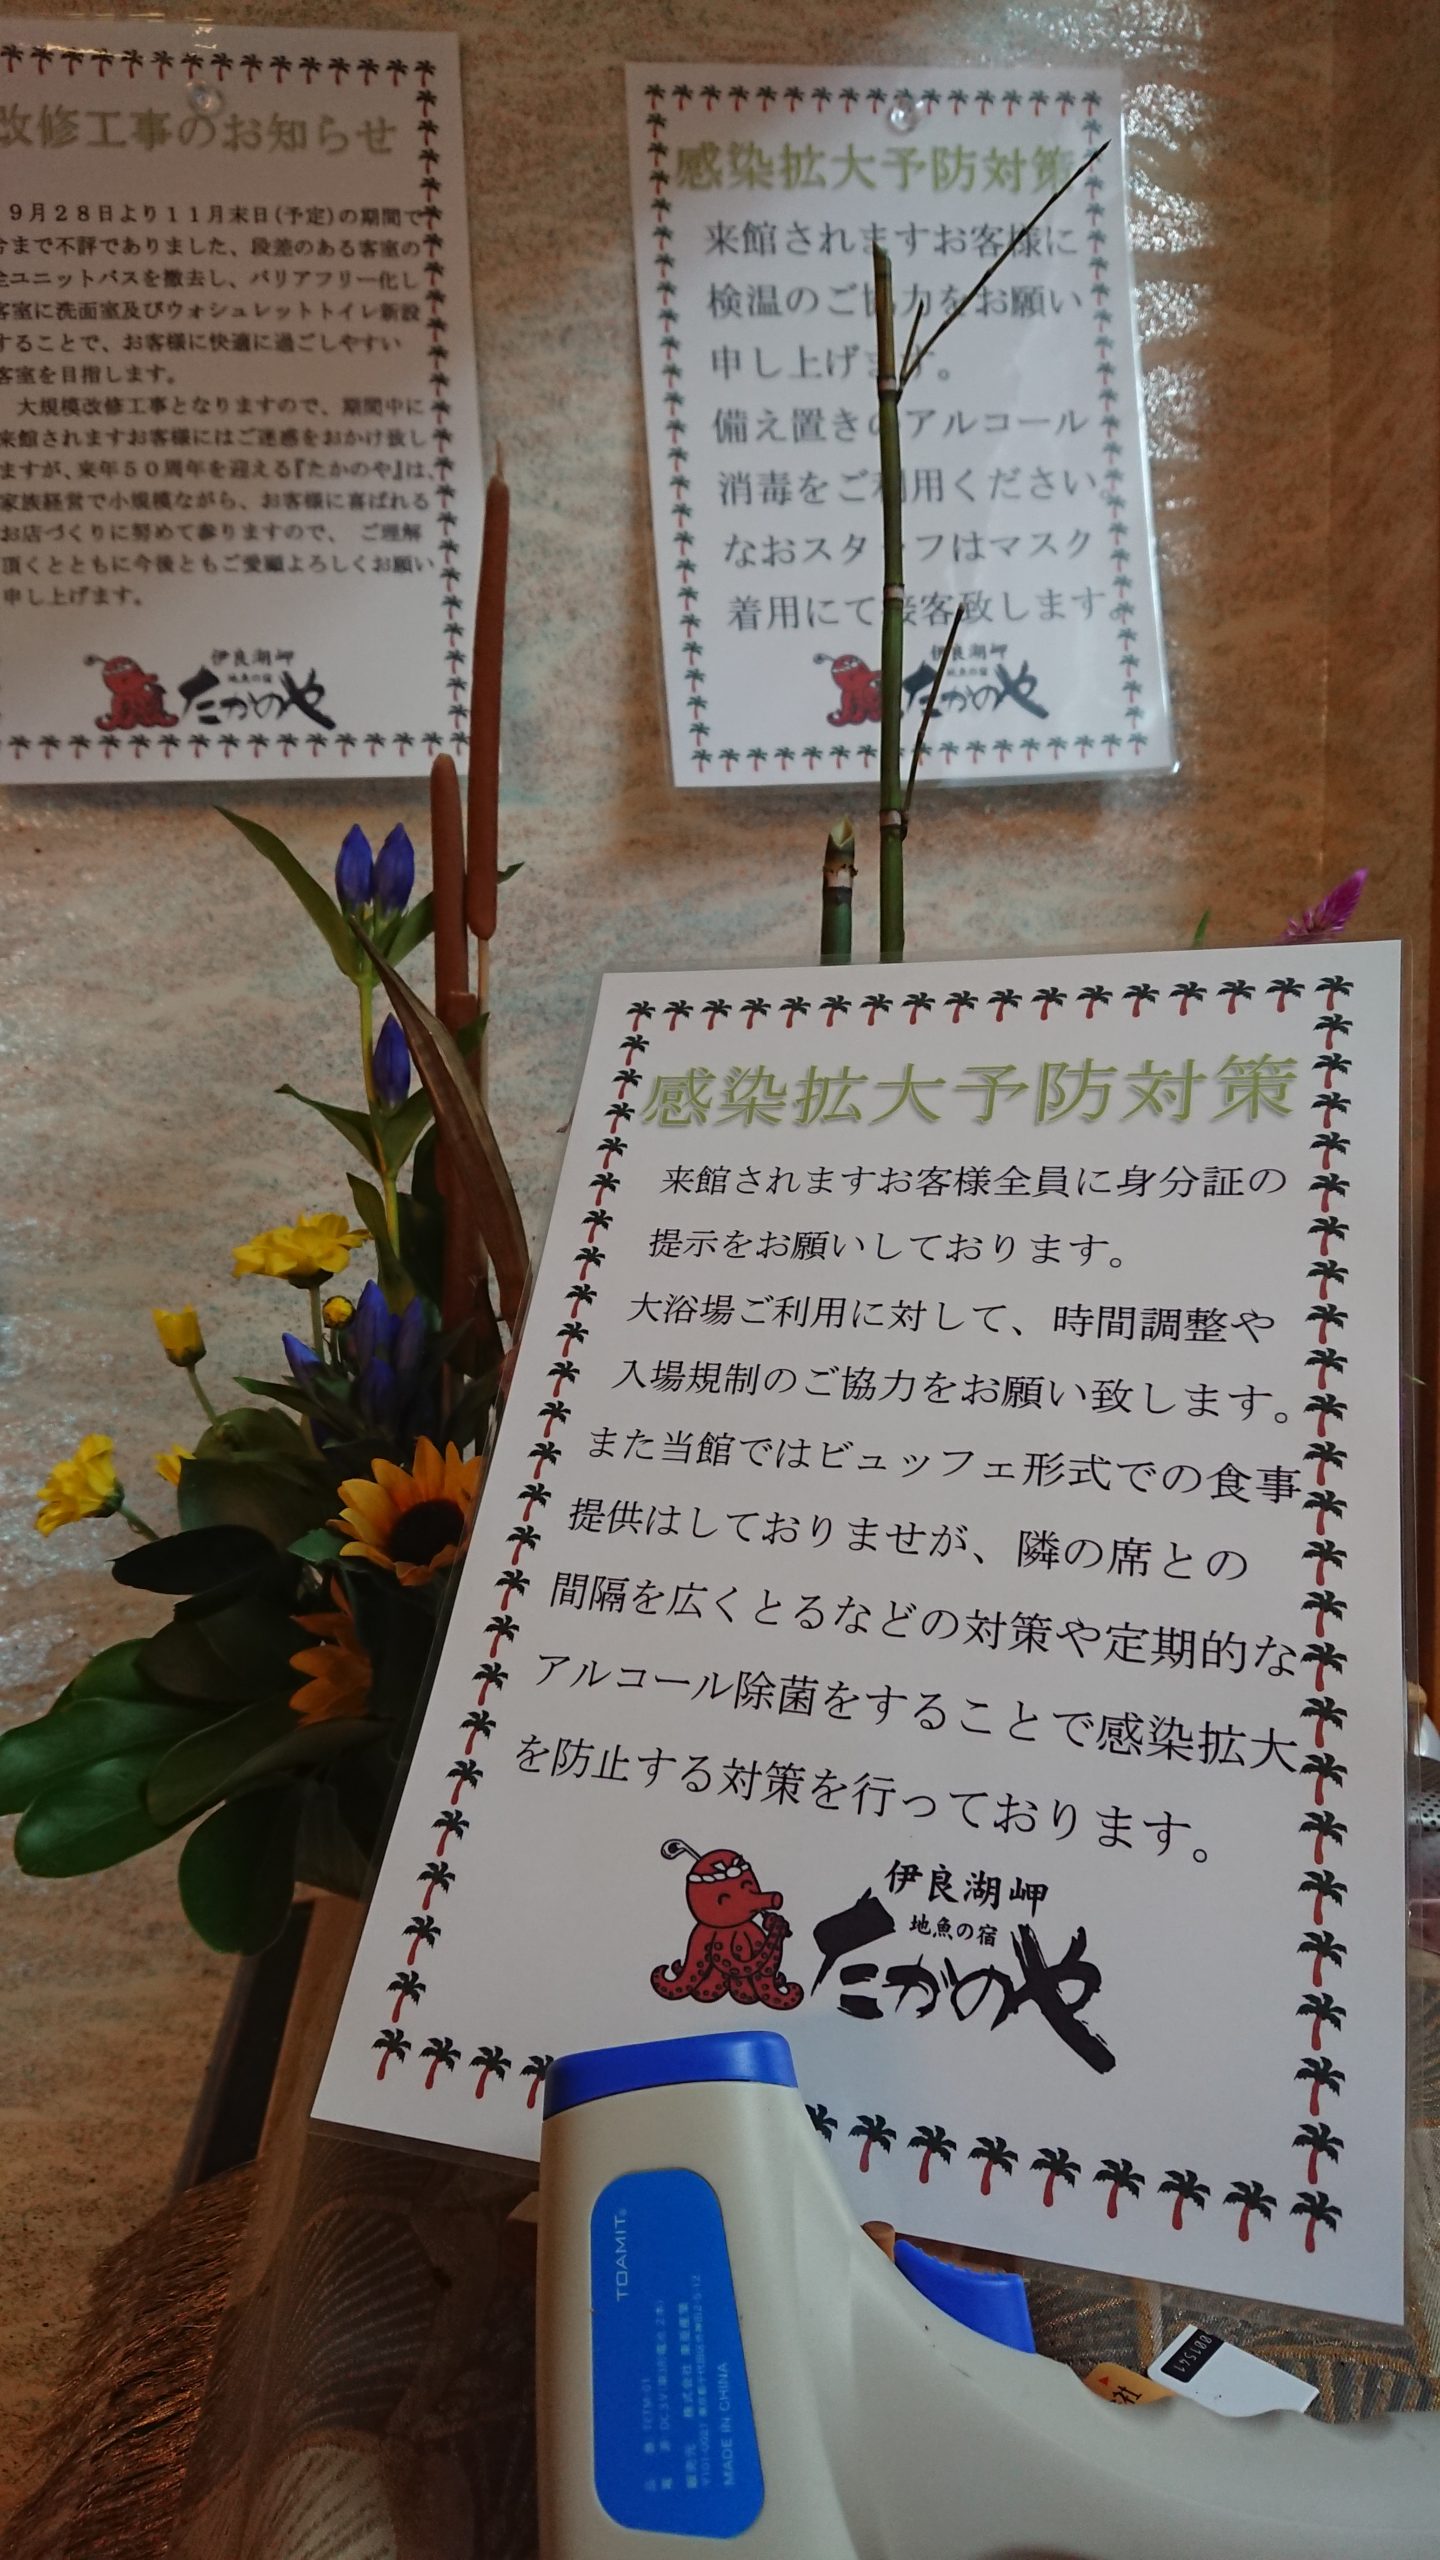 改修工事のお知らせ
9月28日より11月末日(予定)の期間で
今まで不評でありました、段差のある客室の
全ユニットバスを撤去し、バリアフリー化し
客室に洗面室及びウォシュレットトイレ新設
することで、お客様に快適に過ごしやすい
客室を目指します。
大規模改修工事となりますので、期間中に
来館されますお客様にはご迷惑をおかけ致し
ますが、来年50周年を迎える『たかのや』は、
家族経営で小規模ながら、お客様に喜ばれる
お店づくりに努めて参りますので、ご理解
頂くとともに今後ともご愛顧よろしくお願い
申し上げます。
伊良湖岬
地魚の宿
たかのや
感染拡大予防対策
来館されますお客様に
検温のご協力をお願い
申し上げます。
備え置きのアルコール
消毒をご利用ください。
なおスタッフはマスク
着用にて接客致します。
伊良湖岬
地魚の宿
たかのや
感染拡大予防対策
来館されますお客様全員に身分証の
提示をお願いしております。
大浴場ご利用に対して、時間調整や
入場規制のご協力をお願い致します。
また当館ではビュッフェ形式での食事
提供はしておりませが、隣の席との
間隔を広くとるなどの対策や定期的な
アルコール除菌をすることで感染拡大
を防止する対策を行っております。
伊良湖岬
地魚の宿
たかのや
TOAMIT
品番 TETM-01
販売元 株式会社 東亜産業
MADE IN CHINA
001541